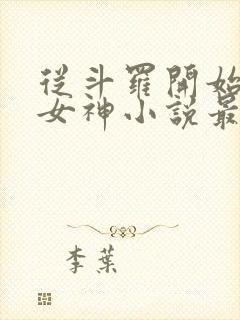 從斗羅開始
女神小說最
李葉